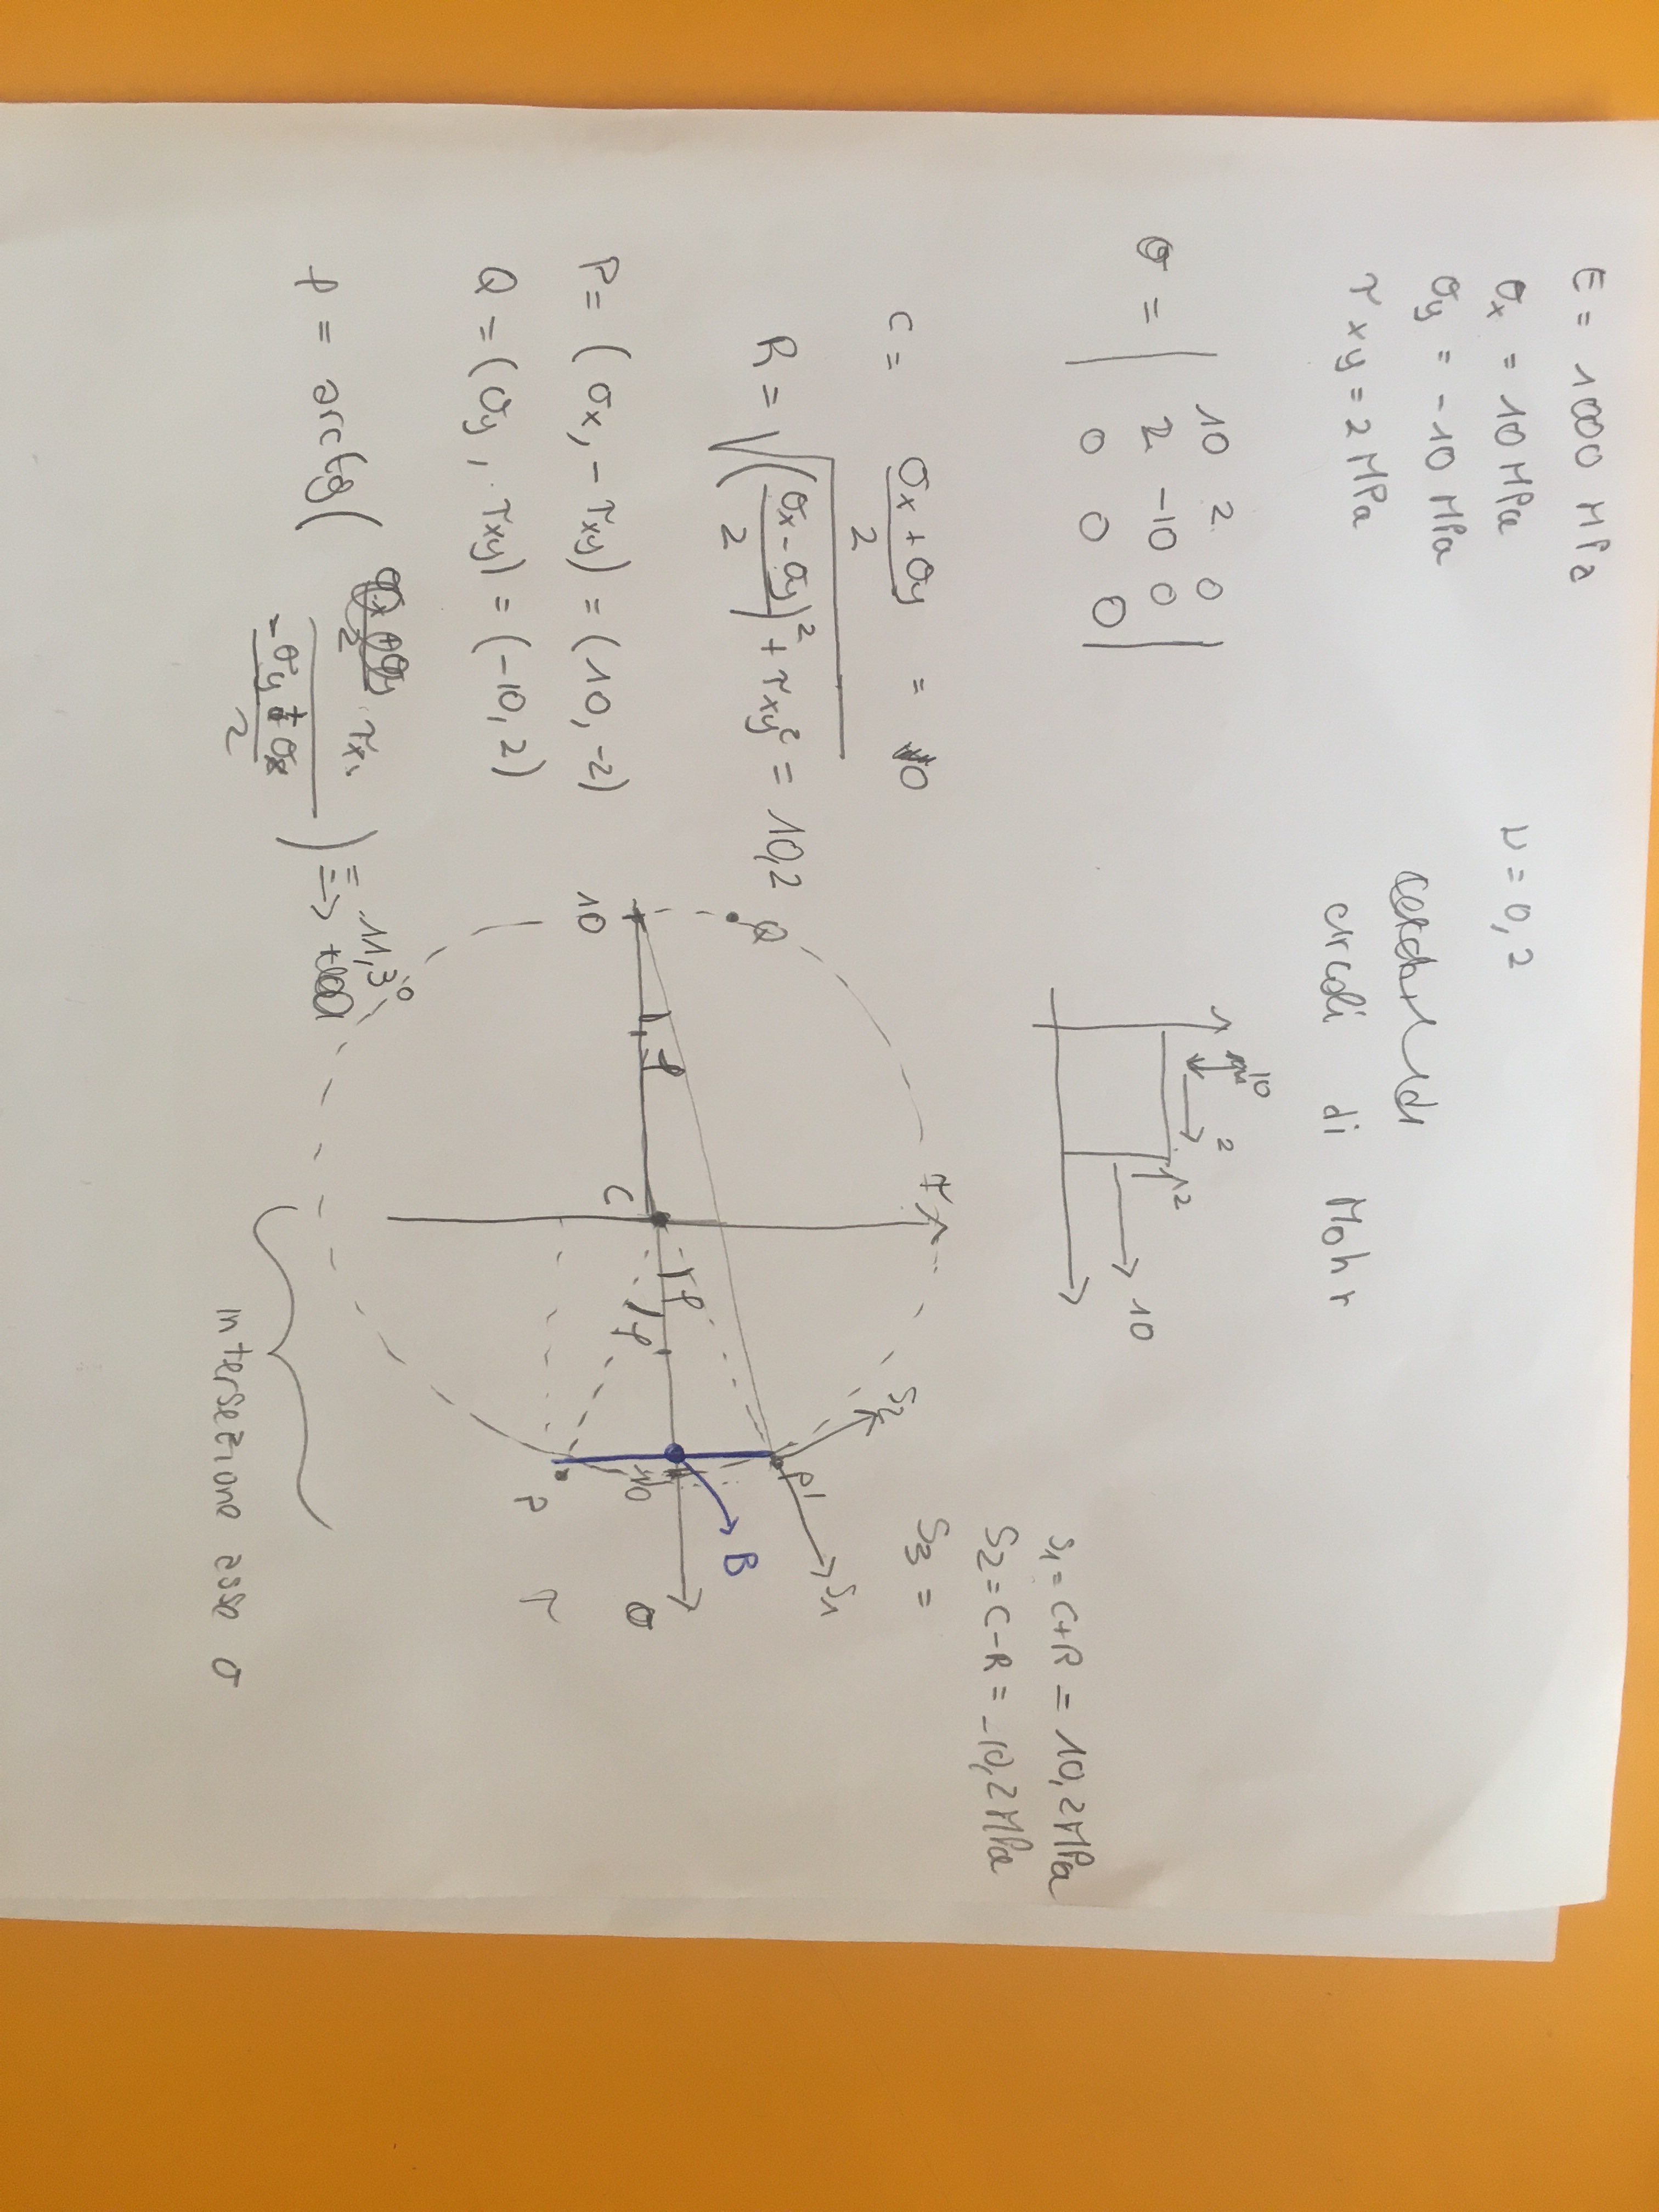 E = 1000 MPa
ν = 0,2
σx = 10 MPa
σy = -10 MPa
τxy = 2 MPa
circoli di Mohr
σ = | 10 2 0
2 -10 0
0 0 0 |
1 10
2
2
10
C = σx + σy / 2 = 0
R = √((σx - σy / 2)² + τxy²) = 10,2
P = (σx, - τxy) = (10, -2)
Q = (σy, τxy) = (-10, 2)
φ = arctg( τxy / (-σy + σx / 2) ) = 11,3°
S1 = C+R = 10,2 MPa
S2 = C-R = -10,2 MPa
S3 =
τ
S2
Q
P'
S1
φ
φ
B
10
C
φ
10
σ
P
τ
intersezione asse σ